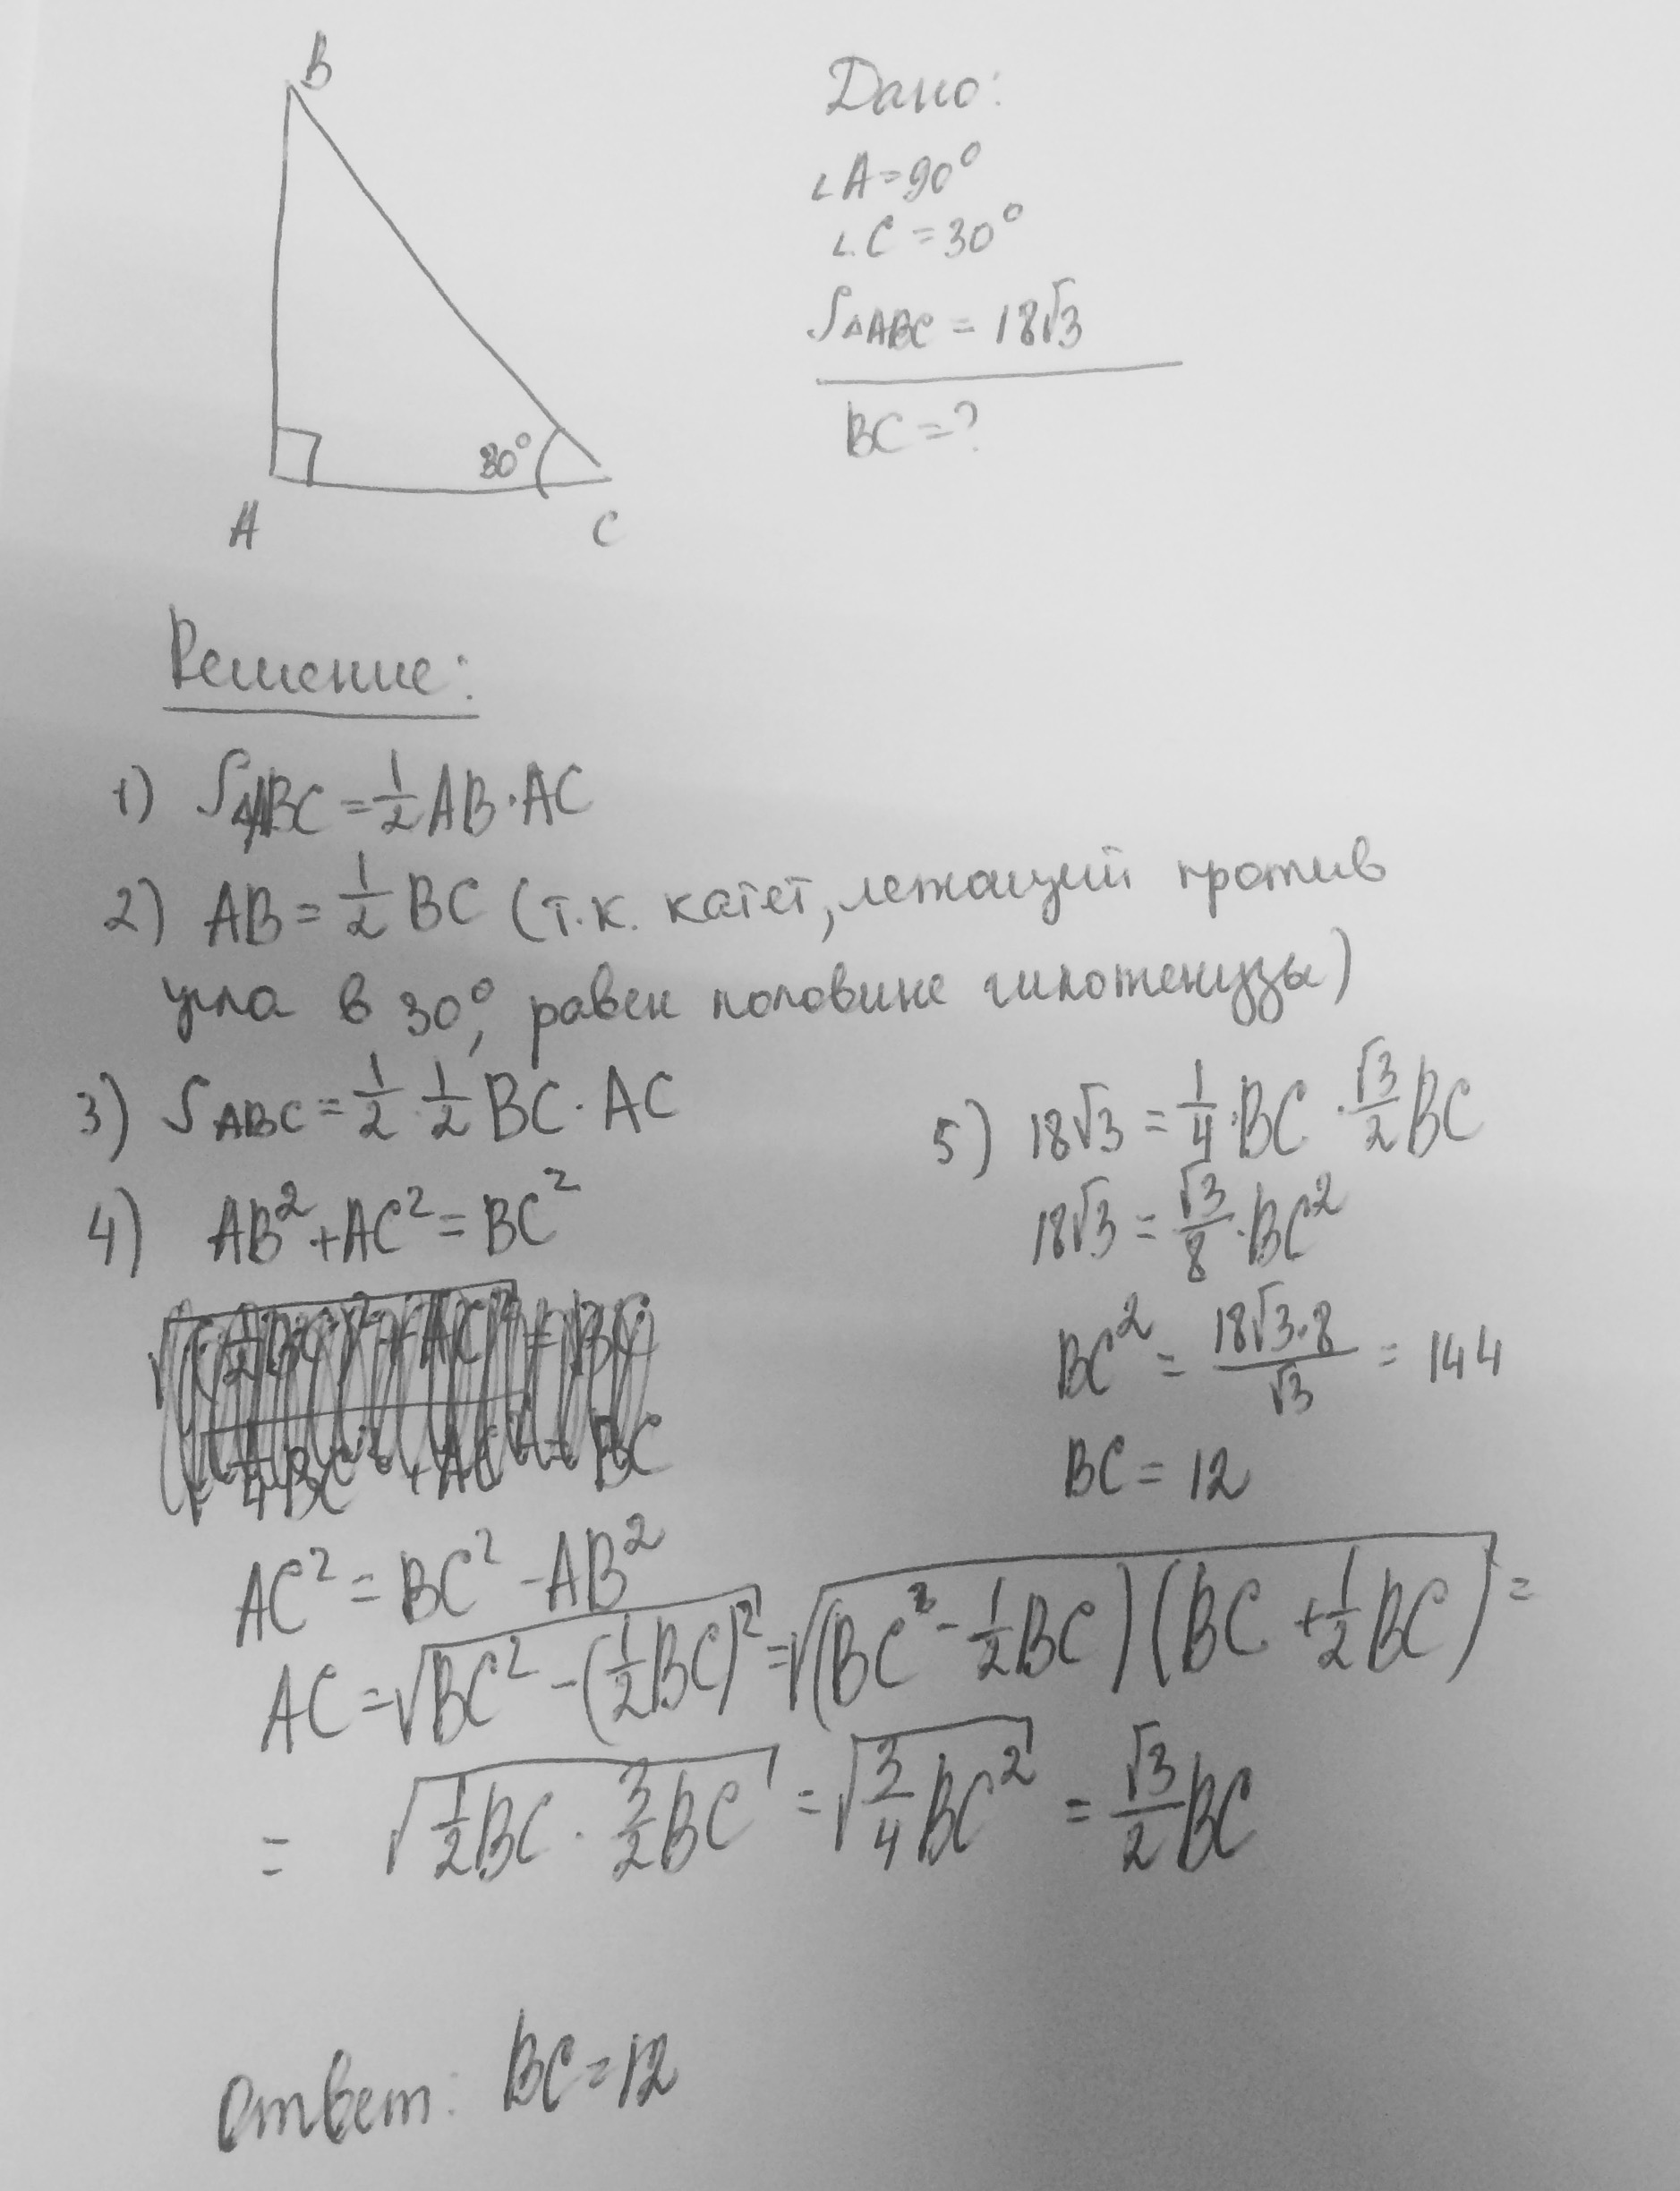 B
A
C
30°
Дано:
∠A=90°
∠C=30°
S△ABC=18√3
BC=?
Решение:
1) S△ABC=1/2 AB·AC
2) AB=1/2 BC (т.к. катет, лежащий против
угла в 30°, равен половине гипотенузы)
3) SABC=1/2·1/2 BC·AC
4) AB²+AC²=BC²
AC²=BC²-AB²
AC=√(BC²-(1/2BC)²)=√((BC-1/2BC)(BC+1/2BC))=
=√(1/2BC·3/2BC)=√(3/4BC²)=√3/2 BC
5) 18√3=1/4·BC·√3/2 BC
18√3=√3/8·BC²
BC²=18√3·8/√3=144
BC=12
Ответ: BC=12